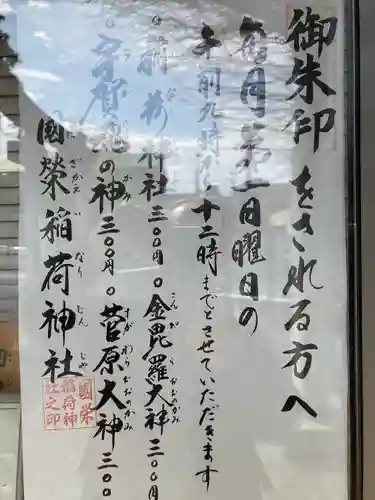 御朱印をされる方へ
毎月第一日曜日の
午前九時〜十二時までとさせていただきます
○稲荷神社三〇〇円○金毘羅大神三〇〇円
○宇賀魂の神三〇〇円○菅原大神三〇〇
國榮稲荷神社
國栄
稲荷神
社之印